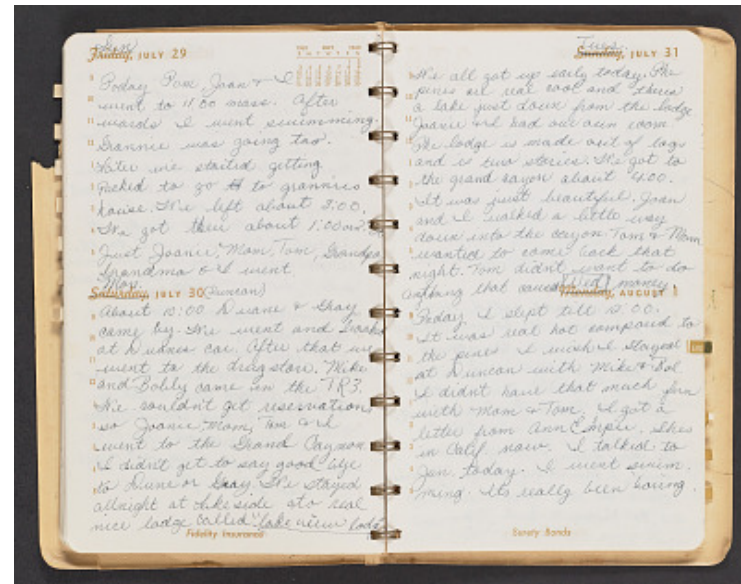 Sun
Friday, JULY 29
Today Tom, Joan & I
went to 11:00 mass. After
wards I went swimming.
Grannie was going too.
Later we started getting
packed to go to grannies
house. We left about 8:00.
We got there about 1:00
Just Joanie, Mom, Tom, Grandpa
Grandma & I went
Mon.
Saturday, JULY 30 (Duncan)
About 10:00 Duane & Gray
came by. We went and looked
at Duanes car. After that we
went to the drug store. Mike
and Bobby came in the TR3.
We couldn't get reservations
so Joanie Mom, Tom & I
went to the Grand Caynon
I didn't get to say good bye
to Duane or Gray. We stayed
allnight at lakeside at a real
nice lodge called "lake view lodge
Fidelity Insurance
Tues.
Sunday, JULY 31
We all got up early today. The
pines are real cool and theres
a lake just down from the lodge
Joanie & I had our own room
The lodge is made out of logs
and is two stories. We got to
the grand cayon about 4:00.
It was just beautiful. Joan
and I walked a little way
down into the cayon Tom & Mom
wanted to come back that
night. Tom didnt want to do
anthing that caused money.
Wed
Monday, AUGUST 1
Today I slept till 12:00.
It was real hot compared to
the pines I wish I stayed
at Duncan with Mike & Bob
I didn't have that much fun
with Mom & Tom. I got a
letter from Ann. Shes
in Calif now. I talked to
Jan today. I went swim.
ming. Its really been boring.
Surety Bonds